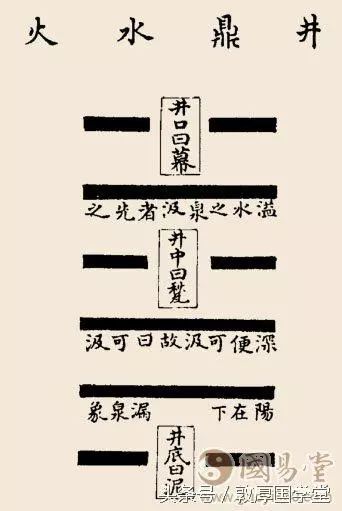 井鼎水火
井口曰幕
溢水之泉汲者先之
井中曰甃
深便可汲故曰可汲
陽在下 漏泉象
井底曰泥
國易堂
头条号／敦厚国学堂